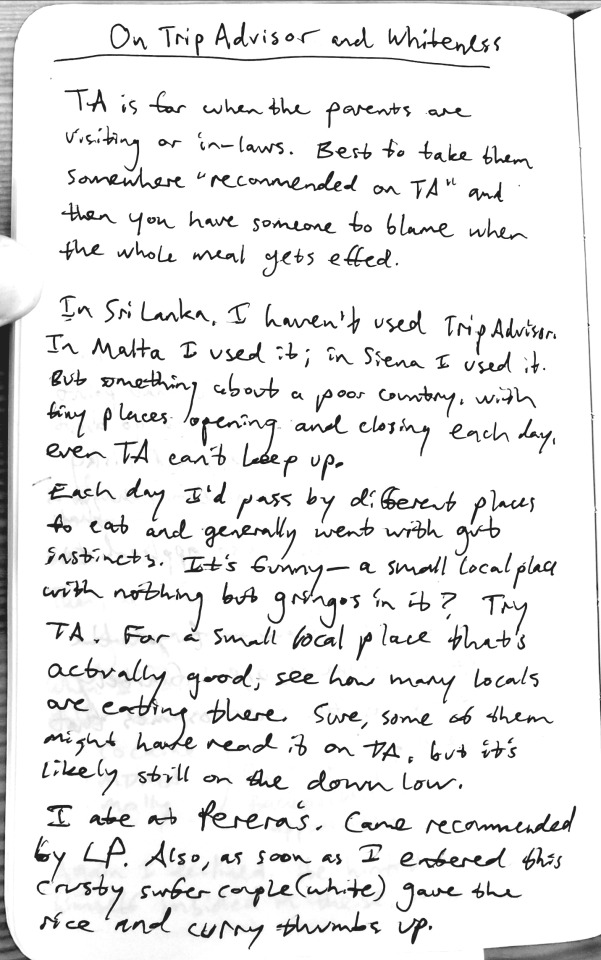 On Trip Advisor and Whiteness
TA is for when the parents are
visiting or in-laws. Best to take them
somewhere "recommended on TA" and
then you have someone to blame when
the whole meal gets effed.
In Sri Lanka, I haven't used Trip Advisor.
In Malta I used it; in Siena I used it.
But something about a poor country, with
tiny places opening and closing each day,
even TA can't keep up.
Each day I'd pass by different places
to eat and generally went with gut
instincts. It's funny - a small local place
with nothing but gringos in it? Try
TA. For a small local place that's
actually good, see how many locals
are eating there. Sure, some of them
might have read it on TA, but it's
likely still on the down low.
I ate at Perera's. Came recommended
by LP. Also, as soon as I entered this
crusty surfer couple (white) gave the
rice and curry thumbs up.